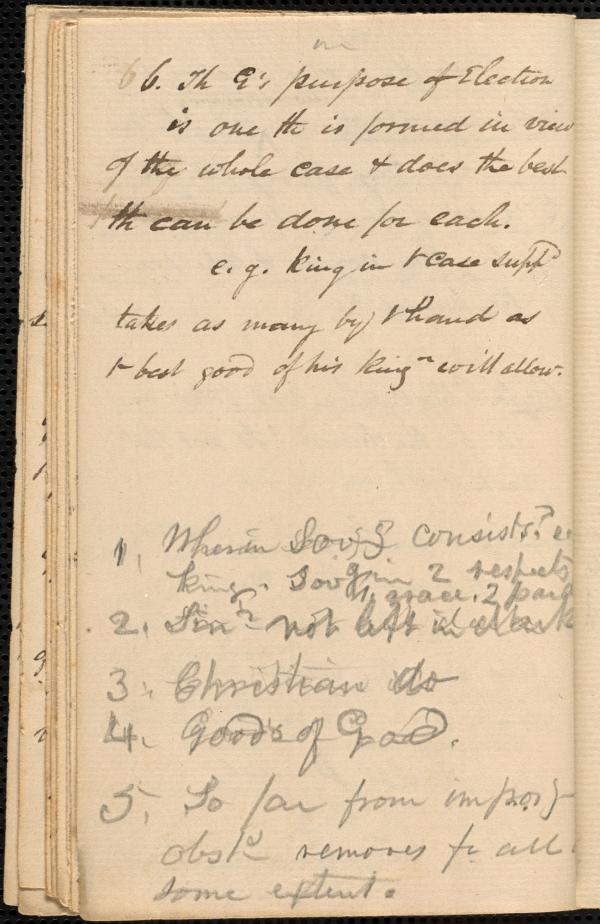 6. Th G's purpose of Election
is one th is formed in view
of the whole case & does the best
th can be done for each.
e.g. King in t case supp^d
takes as many by t hand as
t best good of his king^m will allow.
1. Wherein Sov^g consists?
king. Sov^g in 2 respects
1. grace. 2
2. Sin^r not left in dark
3. Christian do
4. Goods of God.
5. So far from impos^g
obst^n removes fr all
some extent.